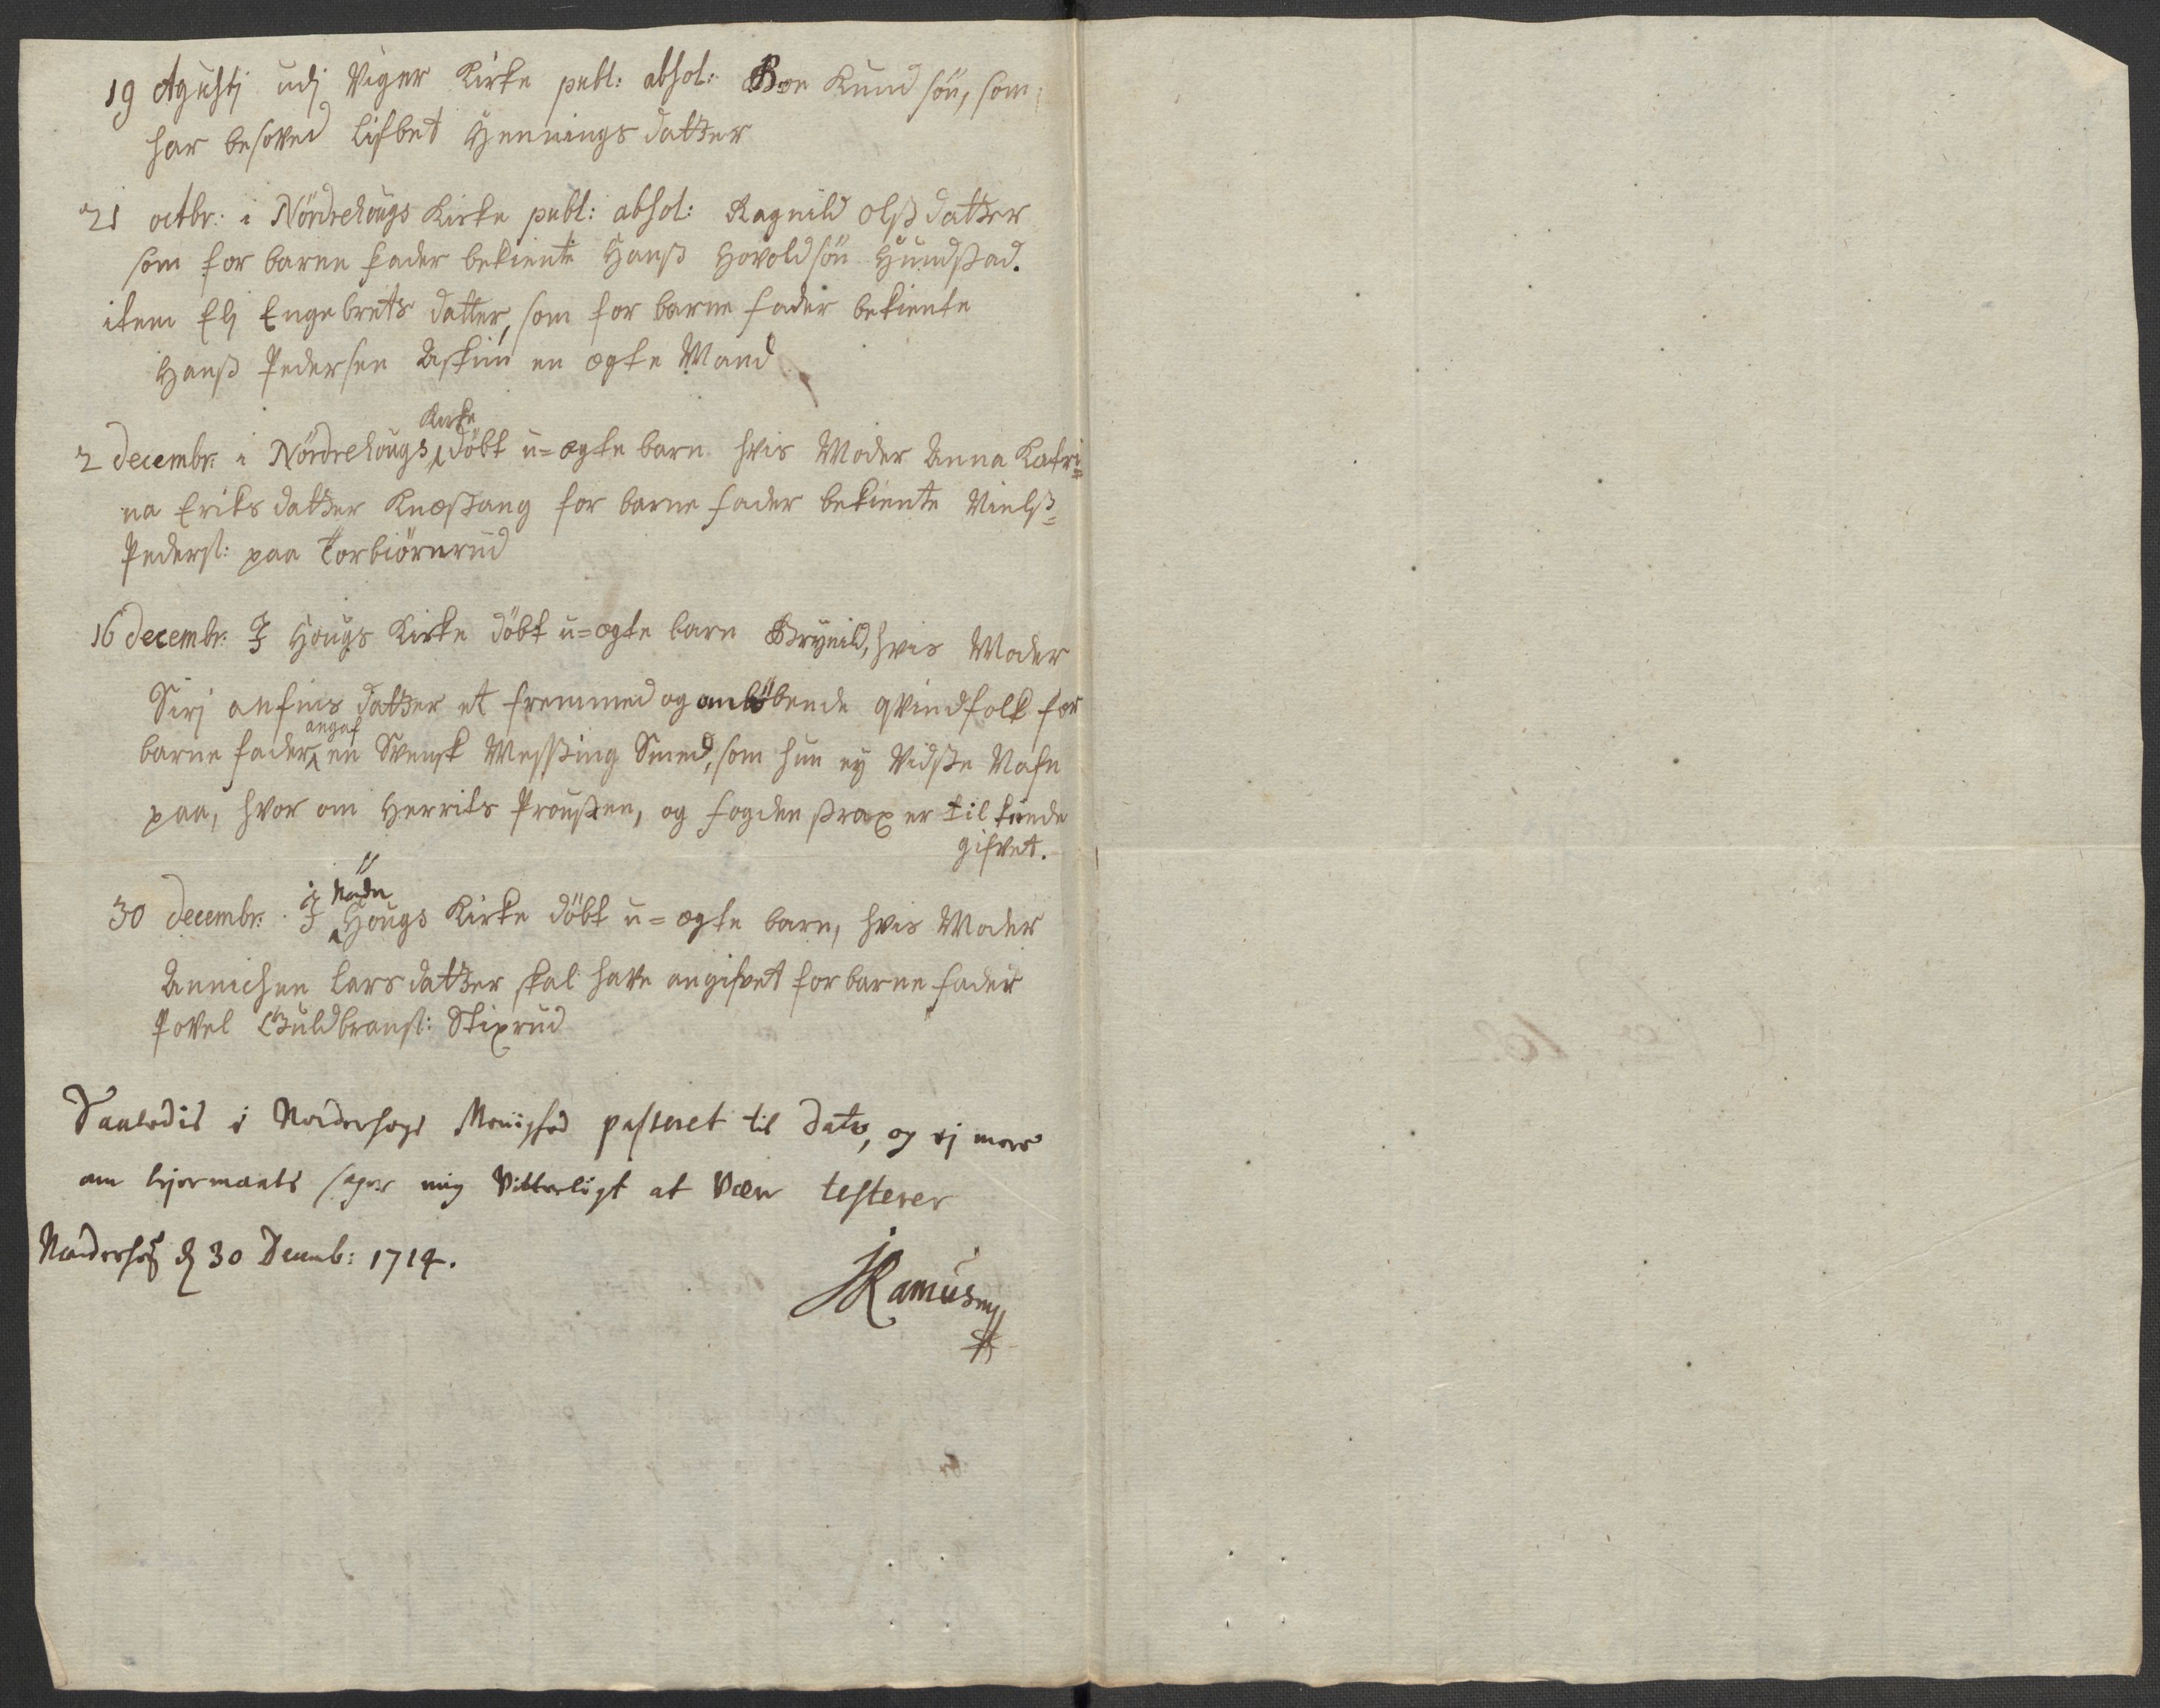 19 Agustj udj Viger Kirke publ: absol: Boe Knudsön, som
har besoved Lisbet Hennings datter
21 octbr: i Nördrehougs Kirke publ: absol: Ragnild Olsdatter
som for barne fader bekiente Hanss Hovoldsön Hundstad.
item Elj Engebrets datter, som for barne fader bekiente
Hanss Pedersen Askim en ægte Mand
Kirke
2 decembr: i Nördrehougs döbt u=ægte barn hvis Moder Anna Katri=
na Eriks datter Knestang for barne fader bekiente Nielss=
Peders: paa Torbiörnrud
16 decembr: I Hougs Kirke döbt u=ægte barn Brynild, hvis Moder
Sirj anfins datter et fremmed og omlöbende qvindfolk for
angaf
barne fader en Svensk Messing Smed, som hun ey Vidste Nafn
paa, hvor om Herrits Prousten, og fogden strax er til kiende
gifvet.
Nödre
30 decembr: I Hougs Kirke döbt u=ægte barn, hvis Moder
Annichen Lars datter skal have angifvet for barne fader
Povel Guldbrans: Stixrud
Saaledis i Norderhogs Menighed passeret til dato, og ej mere
om lejermaals sager mig Vitterligt at være testerer
Norderhog d 30 Decemb: 1714.
JRamus